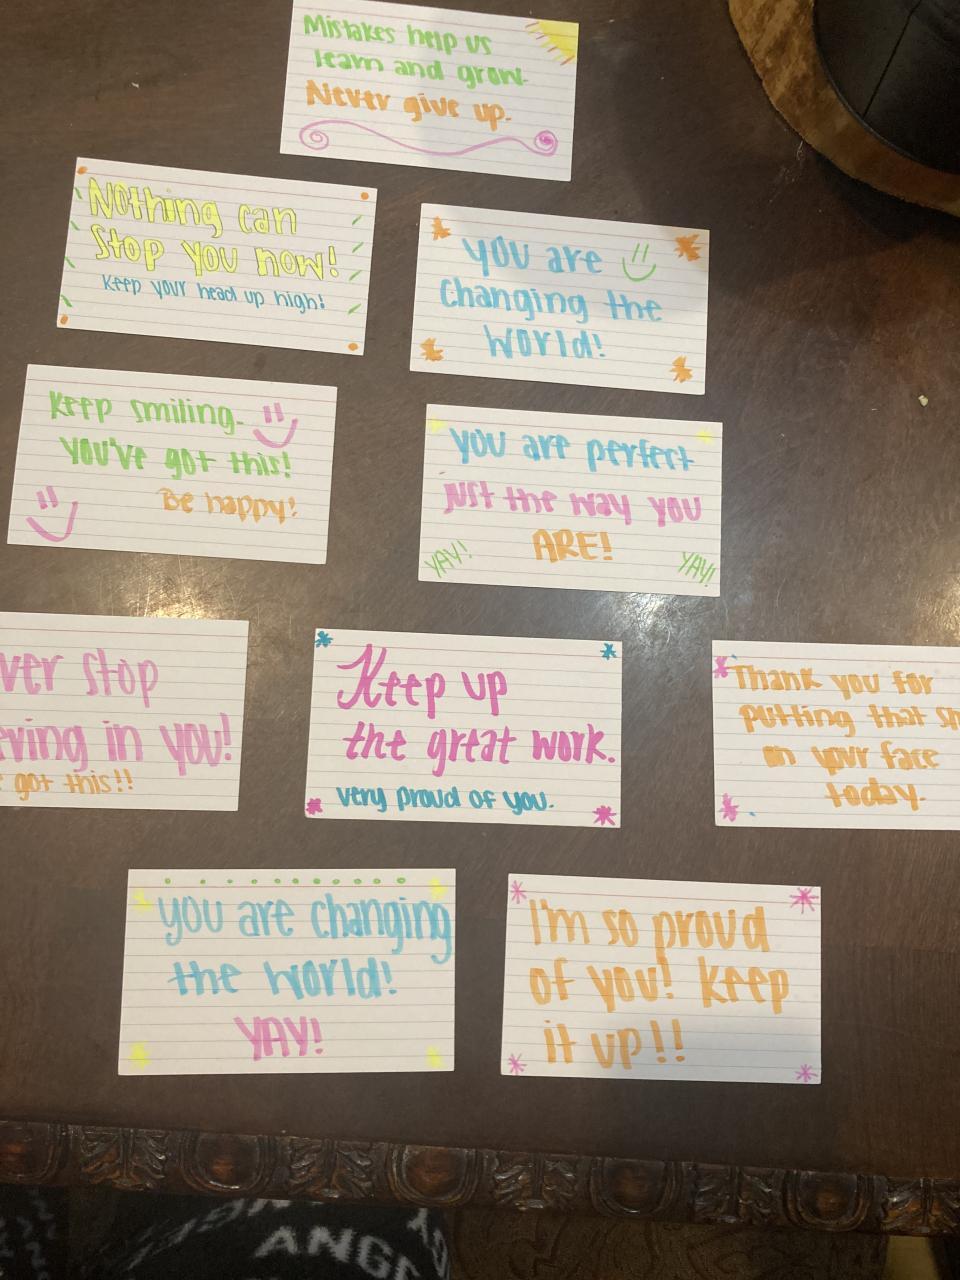 Mistakes help us
learn and grow.
Never give up.
Nothing can
stop you now!
Keep your head up high!
you are
Changing the
World!
Keep smiling.
You've got this!
Be happy!
you are perfect
just the way you
ARE!
YAY!
YAY!
ver stop
eving in you!
got this!!
Keep up
the great work.
very proud of you.
Thank you for
putting that
on your face
today.
you are changing
the world!
YAY!
I'm so proud
of you! Keep
it up!!
ANGE